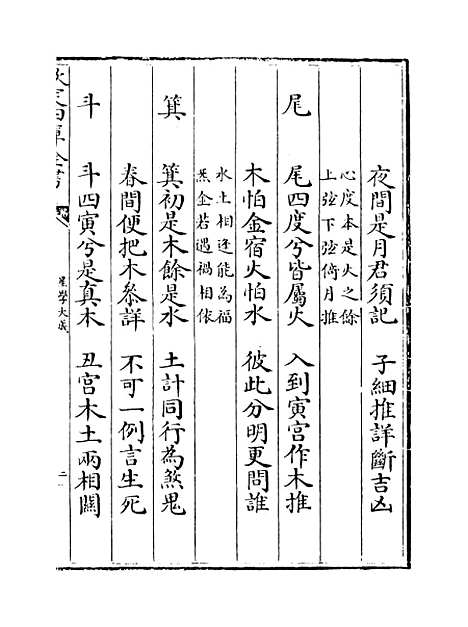 夜間是月君須記　子細推詳斷吉凶
心度本是火之餘
上弦下弦倚月推
尾　尾四度兮皆屬火　入到寅宫作木推
木怕金宿火怕水　彼此分明更問誰
水土相逢能為福
炁金若遇禍相依
箕　箕初是木餘是水　土計同行為煞鬼
春間便把木叅詳　不可一例言生死
斗　斗四寅兮是真木　丑宫木土兩相關
欽定四庫全書
星學大成
二